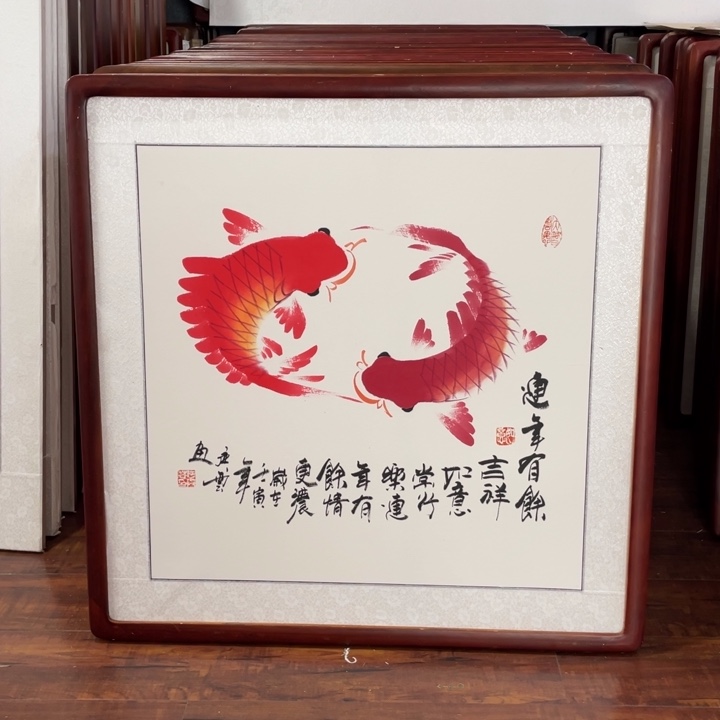 連年有餘
吉祥
如意
常行
樂連
年有
餘情
更濃
歲在
壬寅
年
雲
画